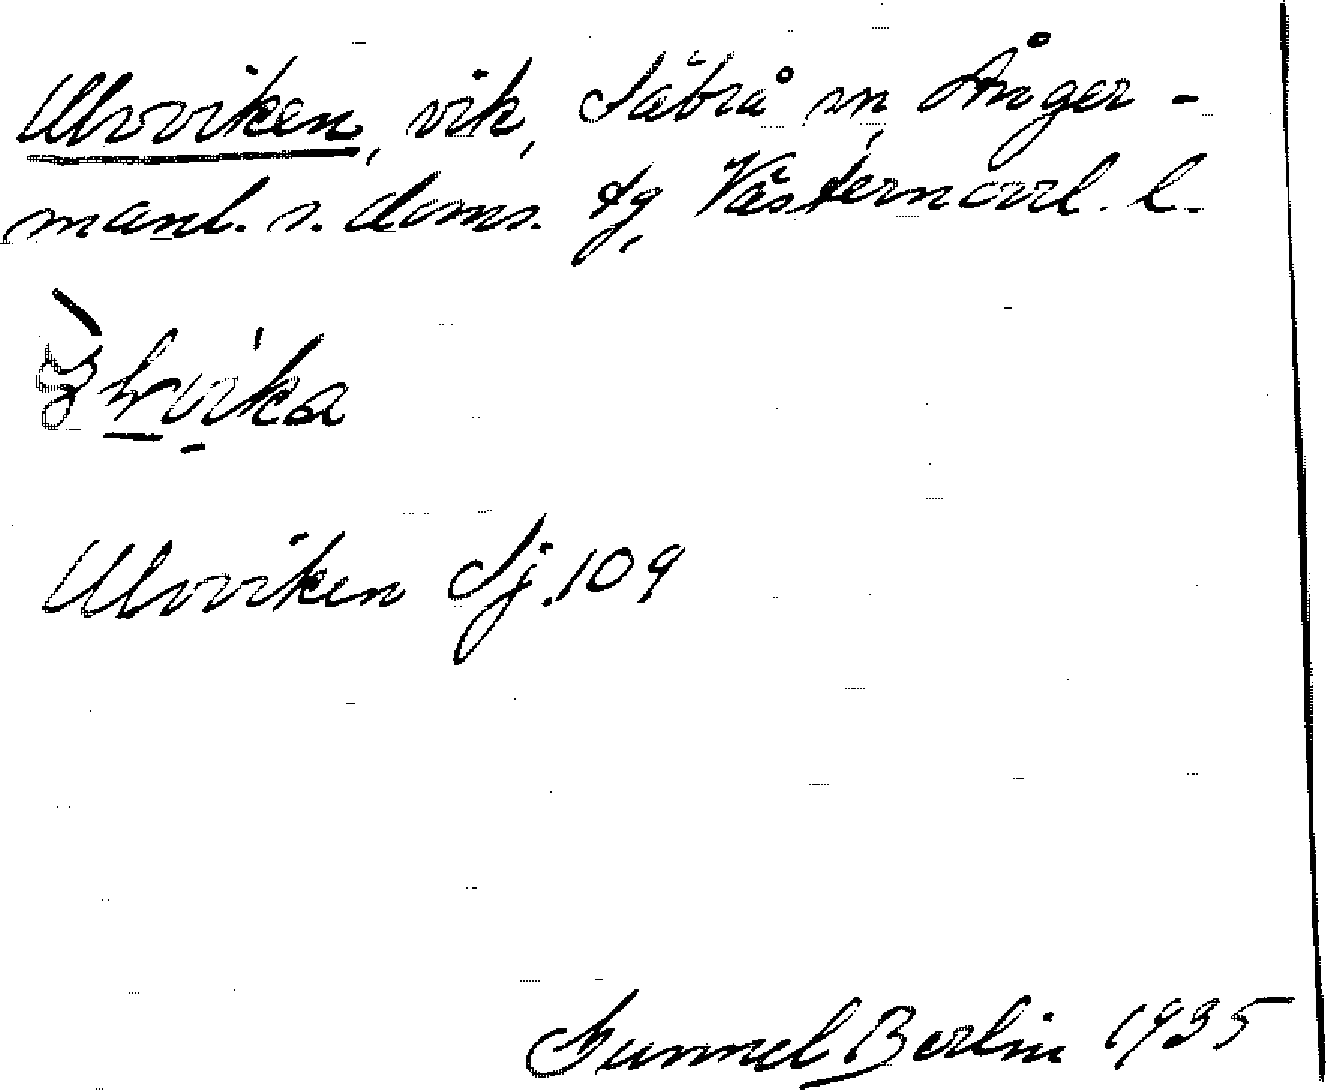 Ulvviken, vik, Säbrå sn, Ånger-
manl. s. doms. tg, Västernorrl. l.
Ulvviken Sj. 109
Gunnel Berlin 1935